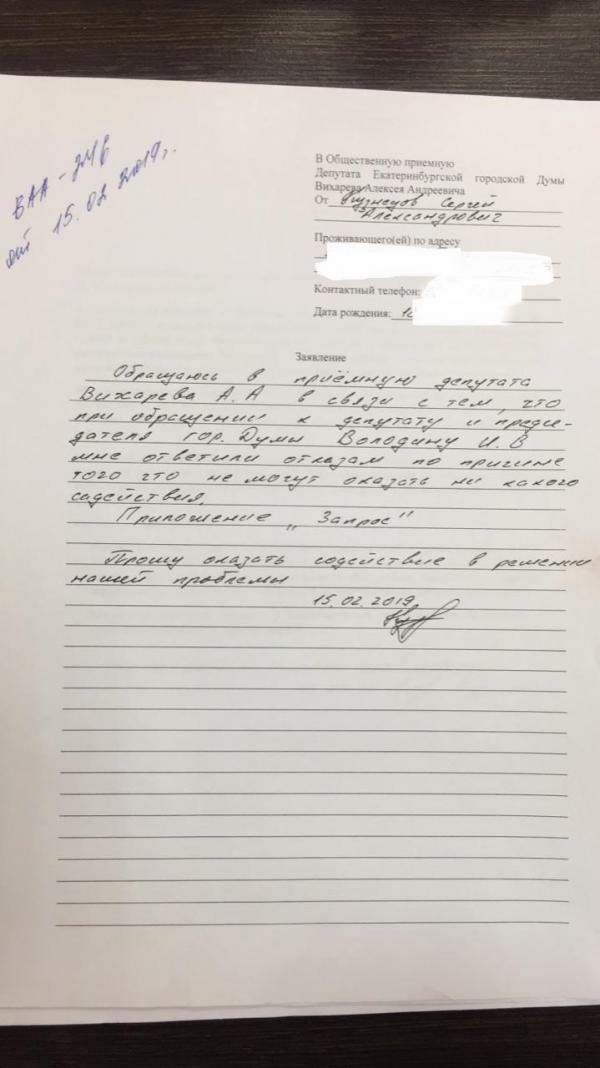 ВАА - 348
от 15.02 2019г.
В Общественную приемную
Депутата Екатеринбургской городской Думы
Вихарева Алексея Андреевича
От Кузнецов Сергей
Александрович
Проживающего(ей) по адресу
Контактный телефон:
Дата рождения:
Заявление
Обращаюсь в приёмную депутата
Вихарева А.А в связи с тем, что
при обращении к депутату и предсе-
дателя гор. Думы Володину И.В
мне ответили отказам по причине
того что не могут оказать ни какого
садействия.
Приложение „Запрос"
Прошу оказать содействие в решении
нашей проблемы
15.02.2019